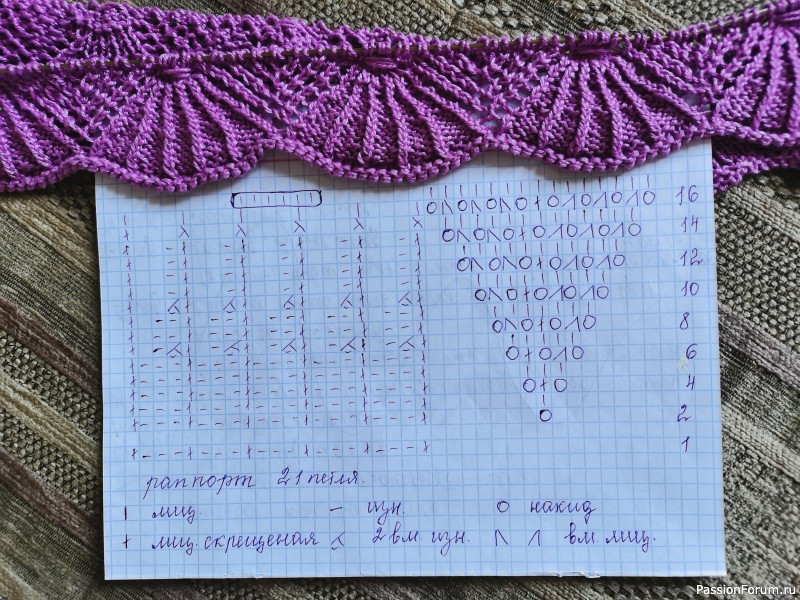 16
14
12
10
8
6
4
2
1
раппорт 21 петля.
| лиц. – изн. О накид
+ лиц. скрещеная ⋌ 2 вм. изн. /\ /| вм. лиц.
PassionForum.ru